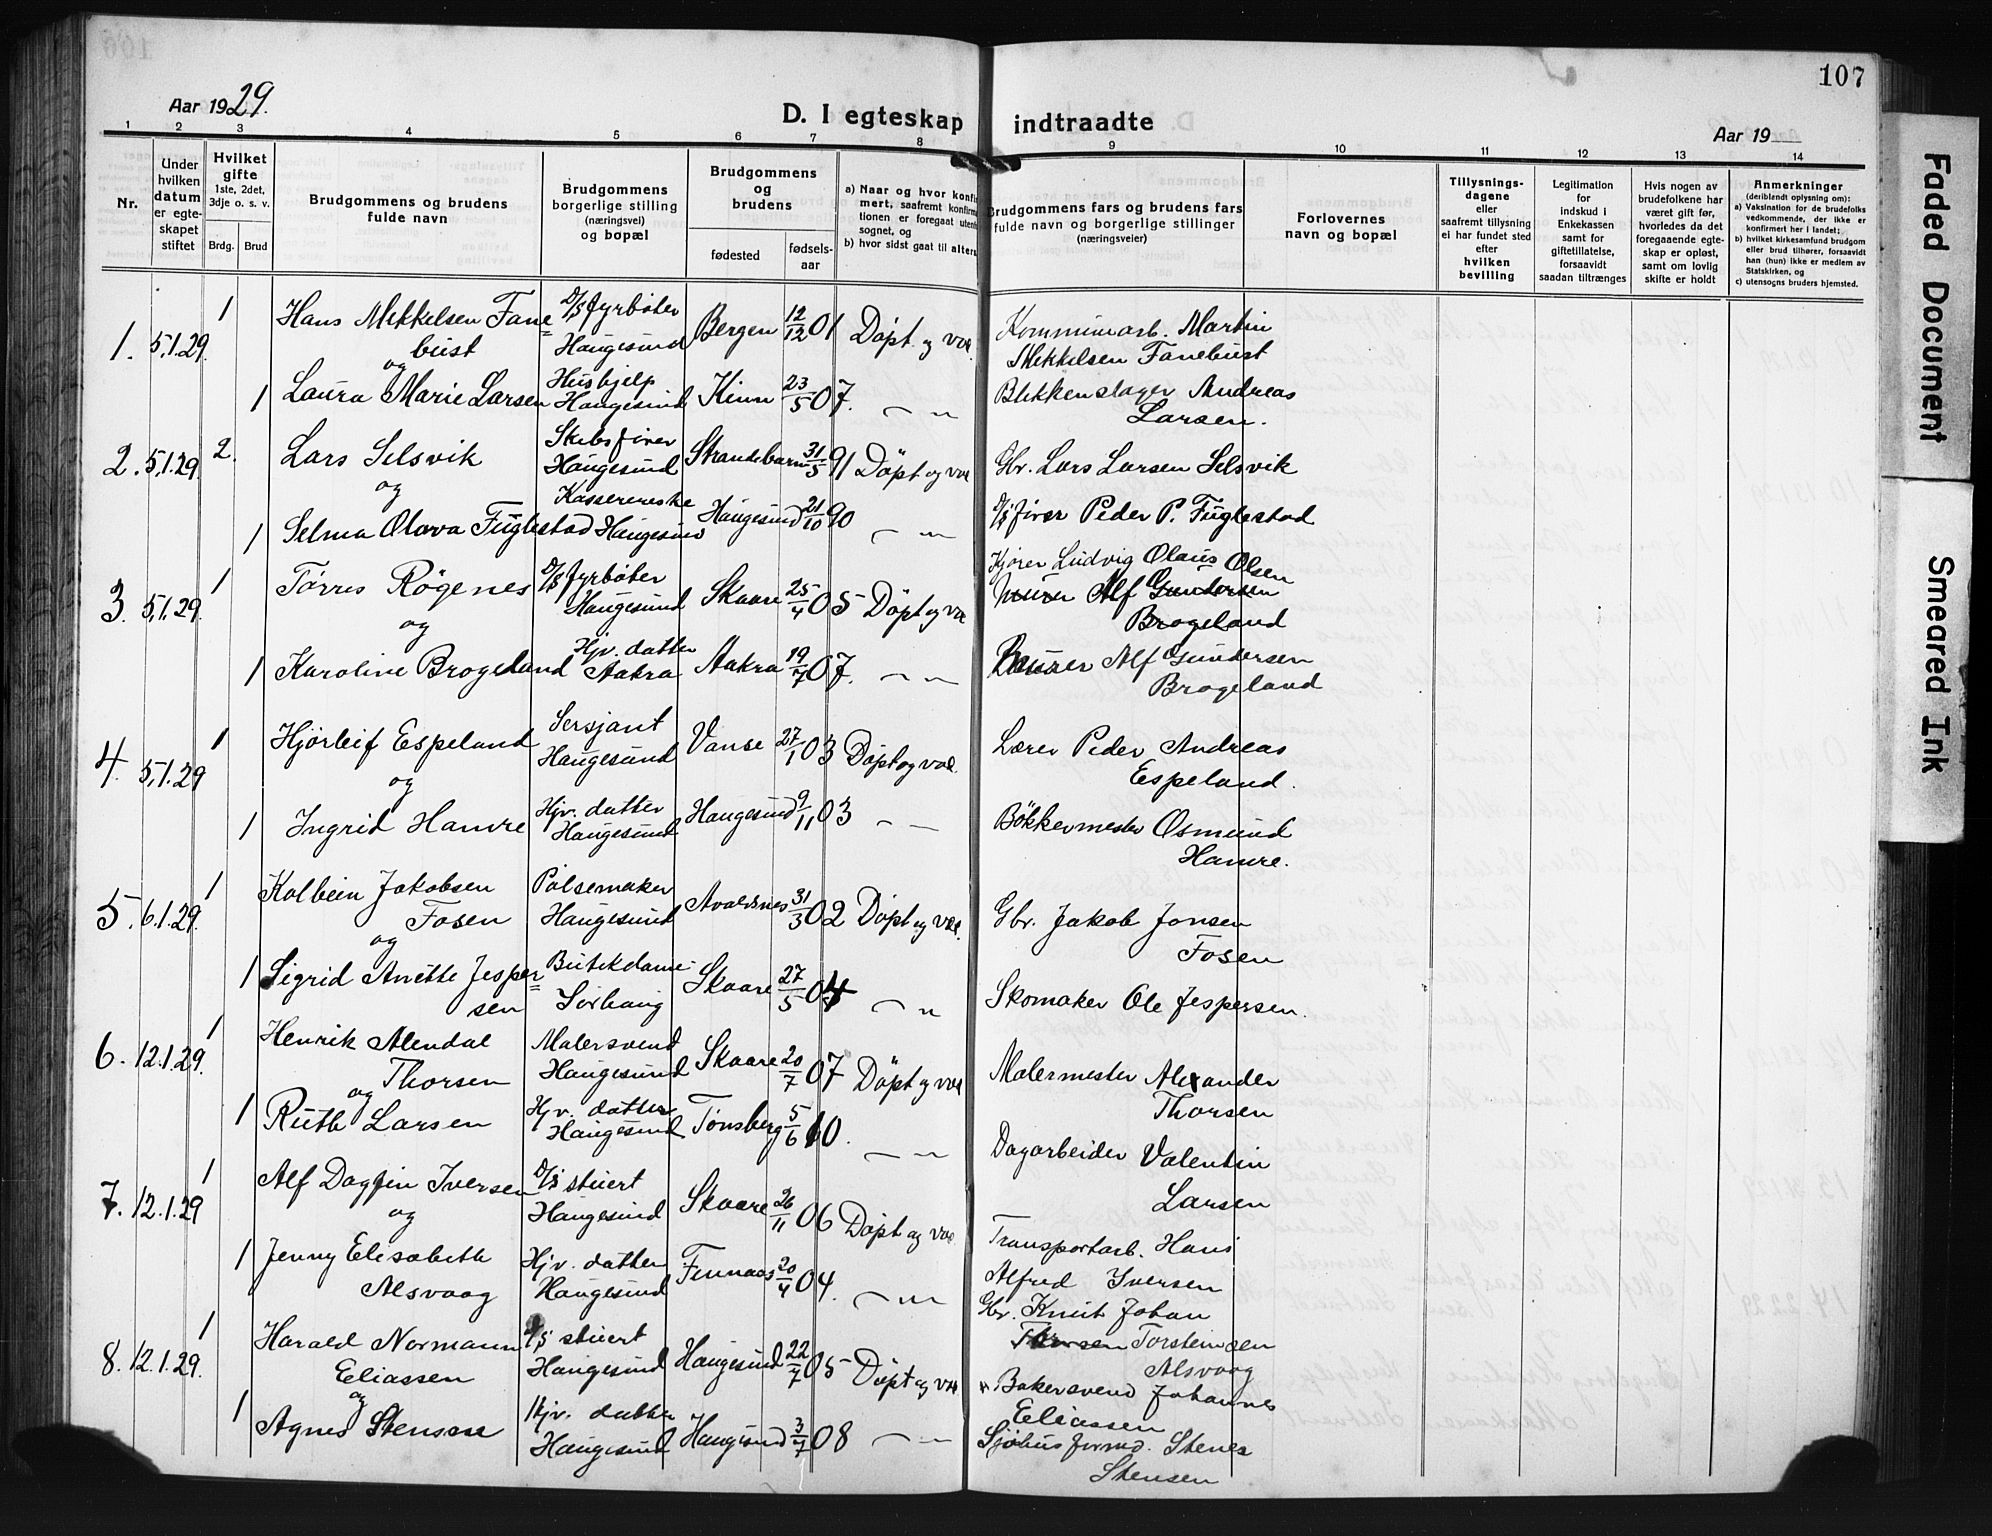 107
Aar 1929.
D. I egteskap indtraadte
Aar 19
1 2 3 4 5 6 7 8 9 10 11 12 13 14
Nr.
Under
hvilken
datum
er egte-
skapet
stiftet
Hvilket
gifte
1ste, 2det,
3dje o. s. v.
Brdg. Brud
Brudgommens og brudens
fulde navn
Brudgommens
borgerlige stilling
(næringsvei)
og bopæl
Brudgommens
og
brudens
fødested
fødsels-
aar
a) Naar og hvor konfir
mert, saafremt konfirma
tionen er foregaat utenfor
sognet, og
b) hvor sidst gaat til alters
Brudgommens fars og brudens fars
fulde navn og borgerlige stillinger
(næringsveier)
Forlovernes
navn og bopæl
Tillysnings-
dagene
eller
saafremt tillysning
ei har fundet sted
efter
hvilken
bevilling
Legitimation
for
indskud i
Enkekassen
samt for
giftetillatelse,
forsaavidt
saadan tiltrænges
Hvis nogen av
brudefolkene har
været gift før,
hvorledes da det
foregaaende egte-
skap er opløst,
samt om lovlig
skifte er holdt
Anmerkninger
(deriblendt oplysning om):
a) Vaksination for de brudefolks
vedkommende, der ikke er
konfirmert her i landet;
b) hvilket kirkesamfund brudgom
eller brud tilhører, forsaavidt
han (hun) ikke er medlem av
Statskirken, og
c) utensogns bruders hjemsted.
1. 5.1.29. 1 Hans Mikkelsen Fane= D/S fyrbøter Bergen 12/12 01 Döpt og vac. Kommunearb. Martin
bust Haugesund Mikkelsen Fanebust
og
1 Laura Marie Larsen Hushjelp Haugesund Kinn 23/5 07. — " — Blikkenslager Andreas
Larsen.
2. 5.1.29. 2. Lars Selsvik Skibsfører Haugesund Strandebarm 31/5 91 Döpt og vac Gbr. Lars Larsen Selsvik
og
1 Selma Olava Fuglestad Kassererske Haugesund Haugesund 21/10 90 — " — D/S fører Peder P. Fuglestad
3. 5.1.29. 1 Tørres Røgenes D/S fyrbøter Haugesund Skaare 25/4 05 Döpt og vac Kjører Ludvig Olaus Olsen
Murer Alf Gundersen
Brogeland
og
1 Karoline Brogeland Hjv. datter Aakra Aakra 19/7 07. — " — Murer Alf Gundersen
Brogeland
4. 5.1.29 1 Hjørleif Espeland Sersjant Haugesund Vanse 27/1 03 Döpt og vac. Lærer Peder Andreas
Espeland.
og
1 Ingrid Hamre Hjv. datter Haugesund Haugesund 9/11 03 — " — Bøkkermester Osmund
Hamre.
5. 6.1.29. 1 Kolbein Jakobsen Pølsemaker Avaldsnes 31/3 02 Döpt og vac. Gbr. Jakob Jonsen
Fosen Haugesund Fosen
og
1 Sigrid Anette Jesper= Butikdame Skaare 27/5 04 — " — Skomaker Ole Jespersen.
sen Sørhaug
6. 12.1.29. 1 Henrik Alendal Malersvend Skaare 20/7 07 Döpt og vac Malermester Alexander
Thorsen Haugesund Thorsen
og
1 Ruth Larsen Hjv. datter Haugesund Tønsberg 5/6 10. — " — Dagarbeider Valentin
Larsen
7. 12.1.29 1 Alf Dagfin Iversen D/S stuert Haugesund Skaare 26/11 06 Döpt og vac. Transportarb. Hans
Alfred Iversen
og
1 Jenny Elisabeth Hjv. datter Finnaas 20/4 04. — " — Gbr. Knut Johan
Alsvaag Haugesund Torsteinsen
Alsvaag
8. 12.1.29. 1 Harald Normann D/S stuert Haugesund 22/7 05 Döpt og vac Bakersvend Johannes
Eliassen Haugesund Eliassen
og
1 Agnes Stensen Hjv. datter Haugesund Haugesund 3/7 08 — " — Sjøhusformd. Stenes
Stensen
Faded Document
Smeared Ink